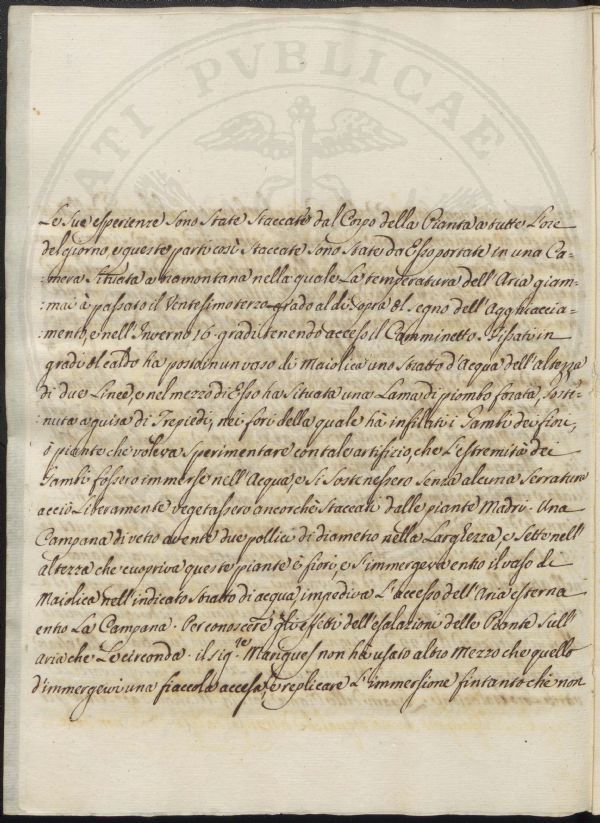 ATI PVBLICAE
Le sue esperienze sono state staccate dal Corpo della Pianta a tutte L'ore
del giorno, e queste parti così staccate sono state da Esso portate in una Ca=
=mera situata a tramontana nella quale La temperatura dell'Aria giam=
=mai à passato il Ventesimoterzo grado al di sopra del segno dell'Agghiaccia=
=mento, e nell'Inverno 16. gradi tenendo acceso il Camminetto. Fissati in
gradi del caldo ha posta in un vaso di Maiolica uno stratto d'Acqua dell'altezza
di due Linee, e nel mezzo di Esso ha situata una Lama di piombo forata, soste=
:nuta a guisa di Trepiedi, nei fori della quale hà infilati i Gambi dei fiori,
ò piante che voleva sperimentare con tale artifizio, che L'estremità dei
Gambi fossero immerse nell'Acqua, e si sostenessero senza alcuna serratura
acciò Liberamente vegetassero ancorchè staccati dalle piante Madri. Una
Campana di vetro avente due pollici di diametro nella Larghezza, e sette nell'
altezza che cuopriva queste piante è fiori, e s'immergeva entro il vaso di
Maiolica nell'indicato stratto di acqua impediva L'accesso dell'Aria esterna
entro La Campana. Per conoscere gli effetti dell'esalazioni delle Piante sull'
aria che Le circonda. il sig.re Marigues non ha usato altro Mezzo che quello
d'immergervi una fiaccola accesa, e replicare L'immersione fintanto che non